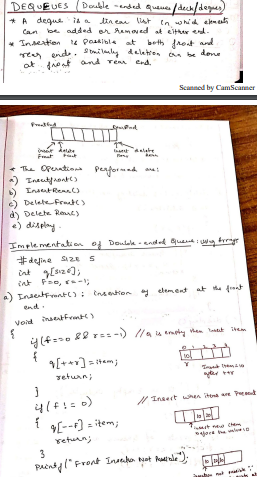 DEQUEUES (Double-ended queue/deck/deques)
* A deque is a linear list in which elements
can be added or removed at either end.
* Insertion is possible at both front and
rear ends. Similarly deletion can be done
at front and rear end.
Scanned by CamScanner
FrontEnd RearEnd
insert delete insert delete
front front Rear Rear
* The Operations performed are:
a) InsertFront()
b) InsertRear()
c) Delete Front()
d) Delete Rear()
e) display.
Implementation of Double-ended Queue: using Arrays
#define SIZE 5
int q[SIZE];
int f=0, r=-1;
a) InsertFront(): insertion of element at the front
end.
void insertFront()
{
if (f==0 && r==-1) // q is empty then insert item
{
0 1 2 3 4
q[++r]=item;
10
return;
r
Insert item=10
after ++r
}
if (f!=0) // Insert when items are present
{
q[--f]=item;
10 20
return;
insert new item
before the value 10
}
printf("Front Insertion Not Possible");
10 20
insertion not possible